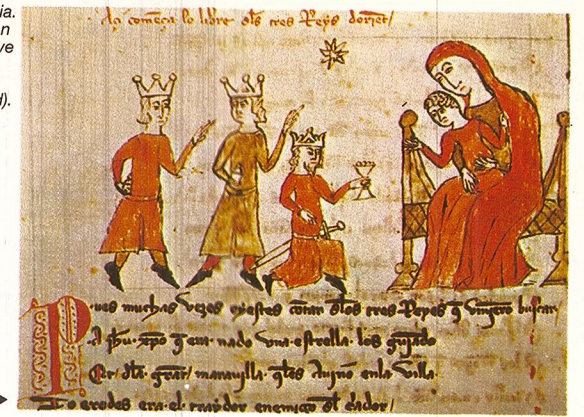 ia.
n
ve
d).
Açi comença lo libre dls tres Reys dorient/
Pues muchas vezes oyestes cōtar dlos tres Reyes q̄ vinyerō buscar
A ihu xpo q̄ era nado vna estrella los guiādo
Et dla grāt marauilla q̄les auino enla villa
Do erodes era el traydor enemigo dl c̄ador/